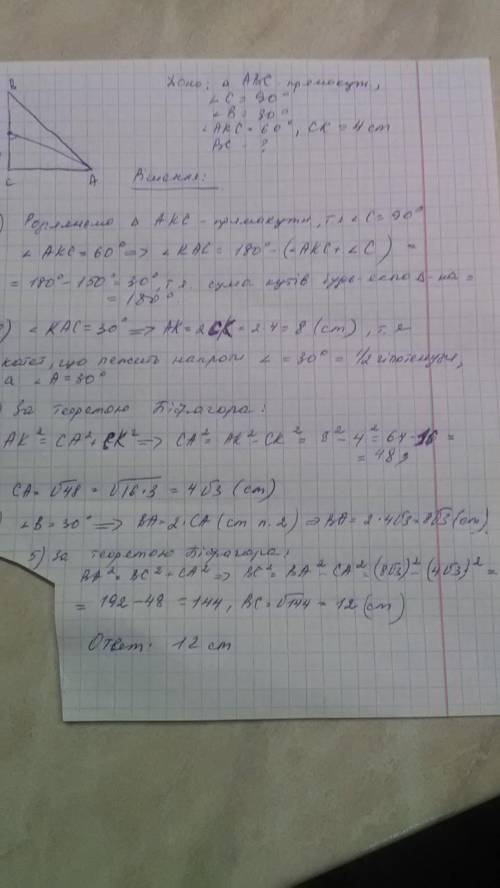 B
C
A
Дано: Δ ABC - прямокутн,
∠C = 90°
∠B = 30°
∠AKC = 60°, CK = 4 cm
BC - ?
Рішення:
) Розглянемо Δ AKC - прямокутн, т.я ∠C = 90°
∠AKC = 60° => ∠KAC = 180° - (∠AKC + ∠C) =
= 180° - 150° = 30°, т.я. сума кутів будь-якого Δ-ка =
= 180°
) ∠KAC = 30° => AK = 2CK = 2·4 = 8 (cm), т.я
катет, що лежить напроти ∠ = 30° = 1/2 гіпотенузи,
а ∠A = 30°
) За теоремою Піфагора:
AK² = CA² + CK² => CA² = AK² - CK² = 8² - 4² = 64 - 16 =
= 48,
CA = √48 = √16·3 = 4√3 (cm)
) ∠B = 30° => BA = 2·CA (cm п. 2) => BA = 2·4√3 = 8√3 (cm)
5) За теоремою Піфагора:
BA² = BC² + CA² => BC² = BA² - CA² = (8√3)² - (4√3)² =
= 192 - 48 = 144, BC = √144 = 12 (cm)
Ответ: 12 cm